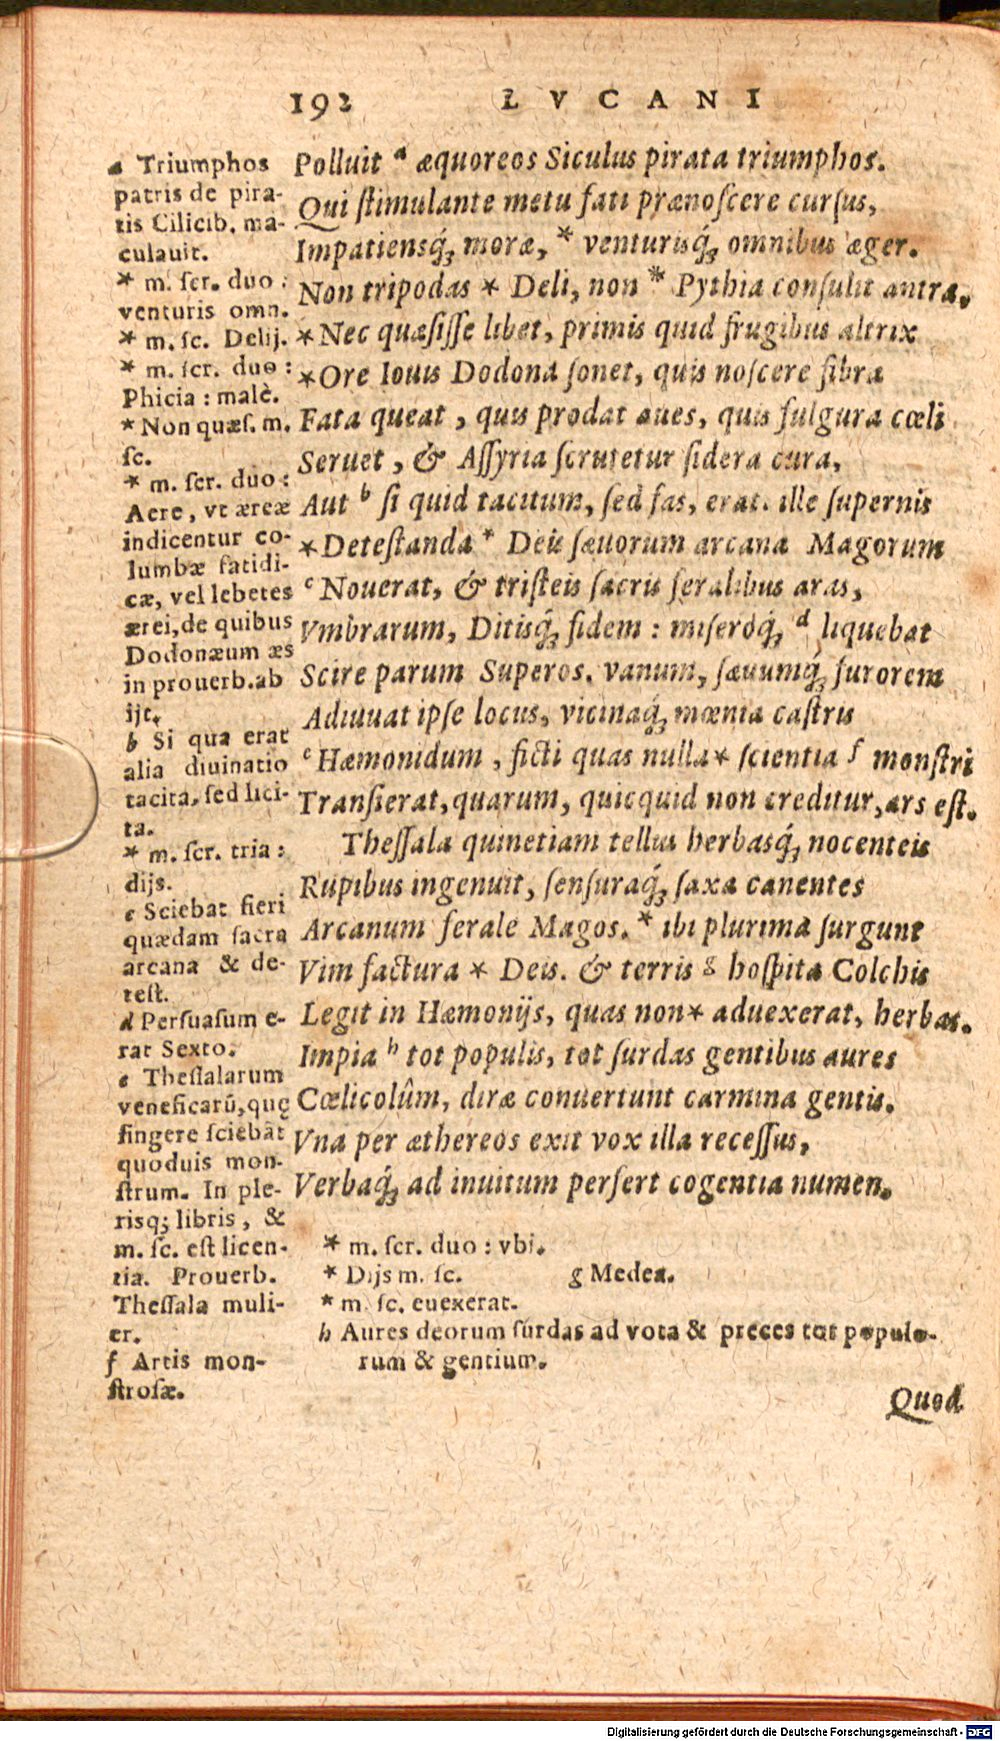 192 LVCANI
Polluit a æquoreos Siculus pirata triumphos.
Qui ſtimulante metu fati prænoſcere curſus,
Impatiensq́; moræ, * venturisq́; omnibus æger.
Non tripodas * Deli, non * Pythia conſulit antra,
*Nec quæſiſſe libet, primis quid frugibus altrix
*Ore Iouis Dodona ſonet, quis noſcere fibra
Fata queat, quis prodat aues, quis fulgura cœli
Seruet, & Aſſyria ſcrutetur ſidera cura,
Aut b ſi quid tacitum, ſed fas, erat. ille ſupernis
*Deteſtanda * Deis ſæuorum arcana Magorum
c Nouerat, & triſteis ſacris feralibus aras,
Vmbrarum, Ditisq́; fidem: miſeroq́; d liquebat
Scire parum Superos. vanum, ſæuumq́; furorem
Adiuuat ipſe locus, vicinaq́; mœnia caſtris
e Hæmonidum, ficti quas nulla * ſcientia f monſtri
Tranſierat, quarum, quicquid non creditur, ars eſt.
Theſſala quinetiam tellus herbasq́; nocenteis
Rupibus ingenuit, ſenſuraq́; ſaxa canentes
Arcanum ferale Magos. * ibi plurima ſurgunt
Vim factura * Deis. & terris g hoſpita Colchis
Legit in Hæmonijs, quas non * aduexerat, herbas.
Impia h tot populis, tot ſurdas gentibus aures
Cœlicolûm, diræ conuertunt carmina gentis.
Vna per æthereos exit vox illa receſſus,
Verbaq́; ad inuitum perfert cogentia numen.
a Triumphos
patris de pira-
tis Cilicib. ma-
culauit.
* m. ſcr. duo:
venturis omn.
* m. ſc. Delij.
* m. ſcr. duo:
Phicia: malè.
* Non quæſ. m.
ſc.
* m. ſcr. duo:
Aere, vt æreæ
indicentur co-
lumbæ fatidi-
cæ, vel lebetes
ærei, de quibus
Dodonæum æs
in prouerb. ab
ijt.
b Si qua erat
alia diuinatio
tacita, ſed lici-
ta.
* m. ſcr. tria:
dijs.
c Sciebat fieri
quædam ſacra
arcana & de-
teſt.
d Perſuaſum e-
rat Sexto.
e Theſſalarum
veneficarũ, quę
fingere ſciebãt
quoduis mon-
ſtrum. In ple-
risq; libris, &
m. ſc. eſt licen-
tia. Prouerb.
Theſſala muli-
er.
f Artis mon-
ſtroſæ.
* m. ſcr. duo: vbi.
* Dijs m. ſc. g Medea.
* m. ſc. euexerat.
h Aures deorum ſurdas ad vota & preces tot populo-
rum & gentium.
Quod
Digitalisierung gefördert durch die Deutsche Forschungsgemeinschaft - DFG